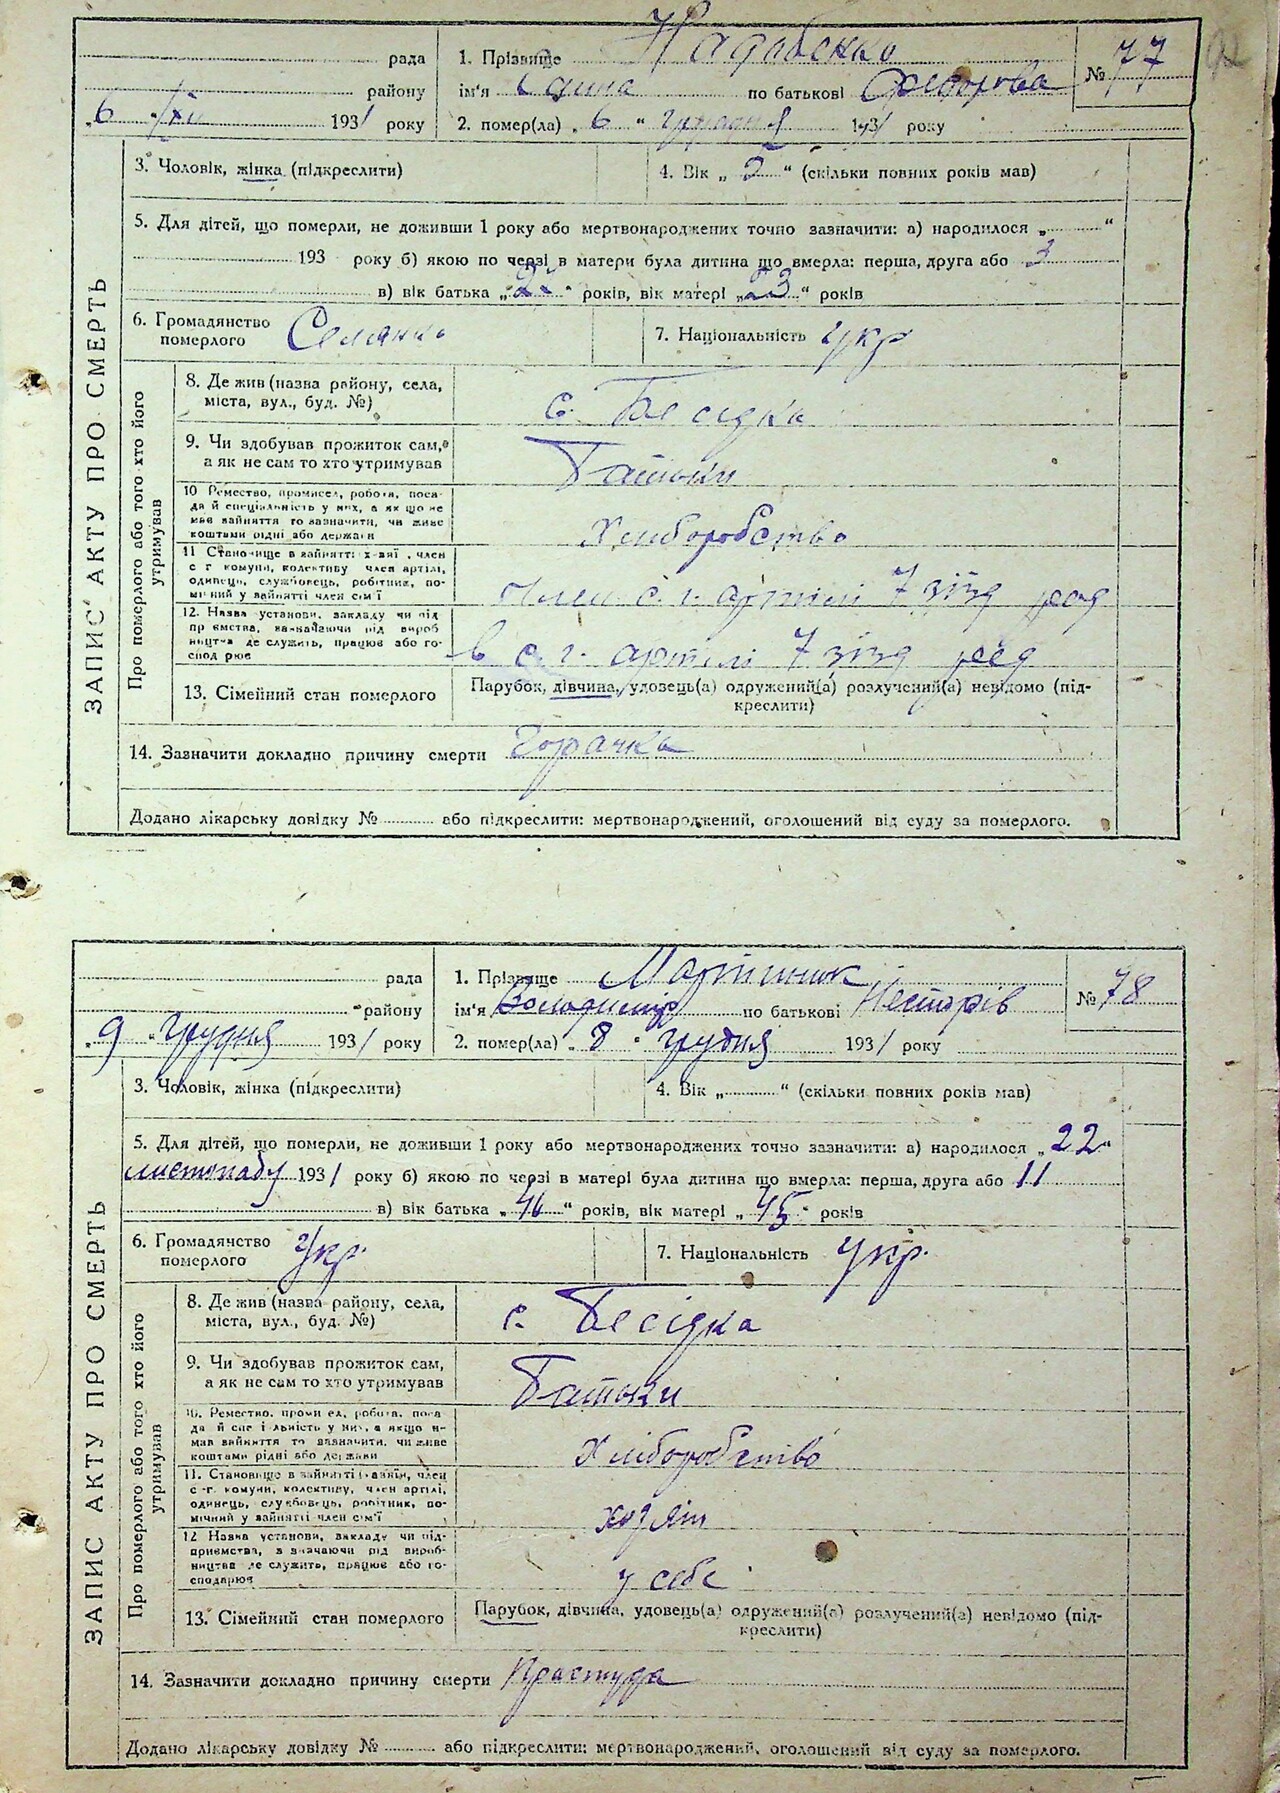 92
рада
району
„6 " /XII 1931 року
1. Прізвище Надобенко
ім'я Ганна по батькові Федорова
№ 77
2. помер(ла) „ 6 " грудня 1931 року
ЗАПИС АКТУ ПРО СМЕРТЬ
3. Чоловік, жінка (підкреслити)
4. Вік „ 2 " (скільки повних років мав)
5. Для дітей, що померли, не доживши 1 року або мертвонароджених точно зазначити: а) народилося „ "
193 року б) якою по черзі в матери була дитина що вмерла: перша, друга або 3
в) вік батька „ " років, вік матері „23" років
6. Громадянство
померлого Селянка
7. Національність укр
Про померлого або того хто його
утримував
8. Де жив (назва району, села,
міста, вул., буд. №)
с. Бесідка
9. Чи здобував прожиток сам,
а як не сам то хто утримував
Батьки
10 Ремество, промисел, робота, поса-
да й спеціяльність у них, а як що не
мав зайняття то зазначити, чи живе
коштами рідні або держави
Хліборобство
11 Становище в зайнятті х-ззі, член
с г комуни, колективу член артілі,
одинець, службовець, робітник, по-
мічний у зайнятті член сім'ї
Член с. г. артілі 7 зізд рад
12. Назва установи, закладу чи під
приємства, зазначаючи рід вироб
ництва де служить, працює або го-
спод рює
в с. г. артілі 7 зізд рад
13. Сімейний стан померлого
Парубок, дівчина, удовець(а) одружений(а) розлучений(а) невідомо (під-
креслити)
14. Зазначити докладно причину смерти Горячка
Додано лікарську довідку № або підкреслити: мертвонароджений, оголошений від суду за померлого.
рада
району
„9 " грудня 1931 року
1. Прізвище Мартинюк
ім'я Володимир по батькові Несторів
№ 78
2. помер(ла) „ 8 " грудня 1931 року
ЗАПИС АКТУ ПРО СМЕРТЬ
3. Чоловік, жінка (підкреслити)
4. Вік „ " (скільки повних років мав)
5. Для дітей, що померли, не доживши 1 року або мертвонароджених точно зазначити: а) народилося „22"
листопаду 1931 року б) якою по черзі в матері була дитина що вмерла: перша, друга або 11
в) вік батька „46" років, вік матері „45" років
6. Громадянство
померлого Укр.
7. Національність Укр.
Про померлого або того хто його
утримував
8. Де жив (назва району, села,
міста, вул., буд. №)
с. Бесідка
9. Чи здобував прожиток сам,
а як не сам то хто утримував
Батьки
10. Ремество, проми ел, робота, поса-
да й спе і льність у них, а якщо н-
мав зайняття то зазначити, чи живе
коштами рідні або держави
Хліборобство
11. Становище в зайнятті хазяїн, член
с -г. комуни, колективу, член артілі,
одинець, службовець, робітник, по-
мічний у зайнятті член сім'ї
хозяїн
12 Назва установи, закладу чи під-
приємства, з значаючи рід вироб-
ництва де служить, працює або го-
сподарює
у себе
13. Сімейний стан померлого
Парубок, дівчина, удовець(а) одружений(а) розлучений(а) невідомо (під-
креслити)
14. Зазначити докладно причину смерти Простуда
Додано лікарську довідку № або підкреслити: мертвонароджений, оголошений від суду за померлого.